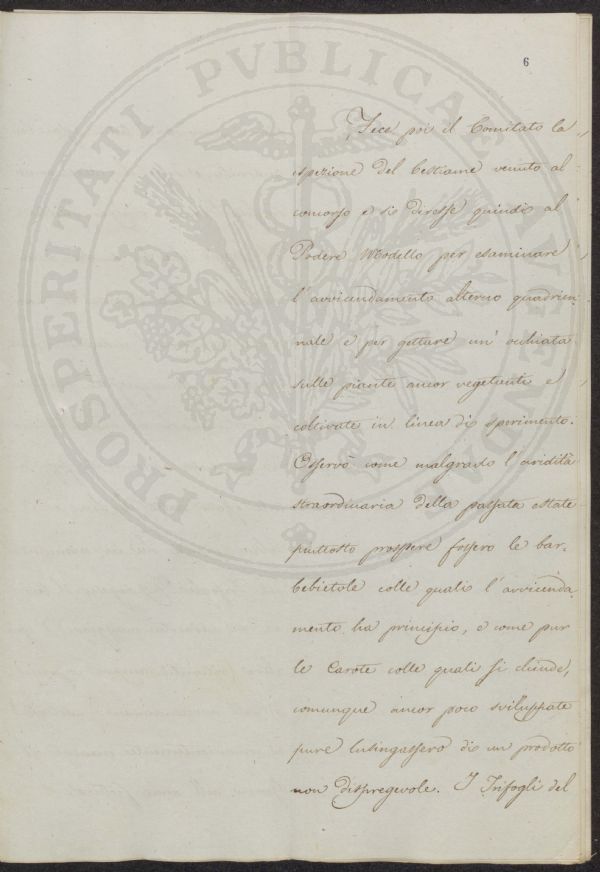 6
PROSPERITATI PVBLICAE AVGENDAE
Fece poi il Comitato la
ispezione del bestiame venuto al
concorso e si diresse quindi al
Podere Modello per esaminare
l'avvicendamento alterno quadrien-
nale e per gettare un'ochiata
sulle piante ancor vegetanti e
coltivate in linea di sperimento.
Osservò come malgrado l'aridità
straordinaria della passata estate
piuttosto prospere fossero le bar-
bebietole colle quali l'avvicenda-
mento ha principio, e come pur
le Carote colle quali si chiude,
comunque ancor poco sviluppate
pure lusingassero di un prodotto
non dispregevole. I Trifogli del